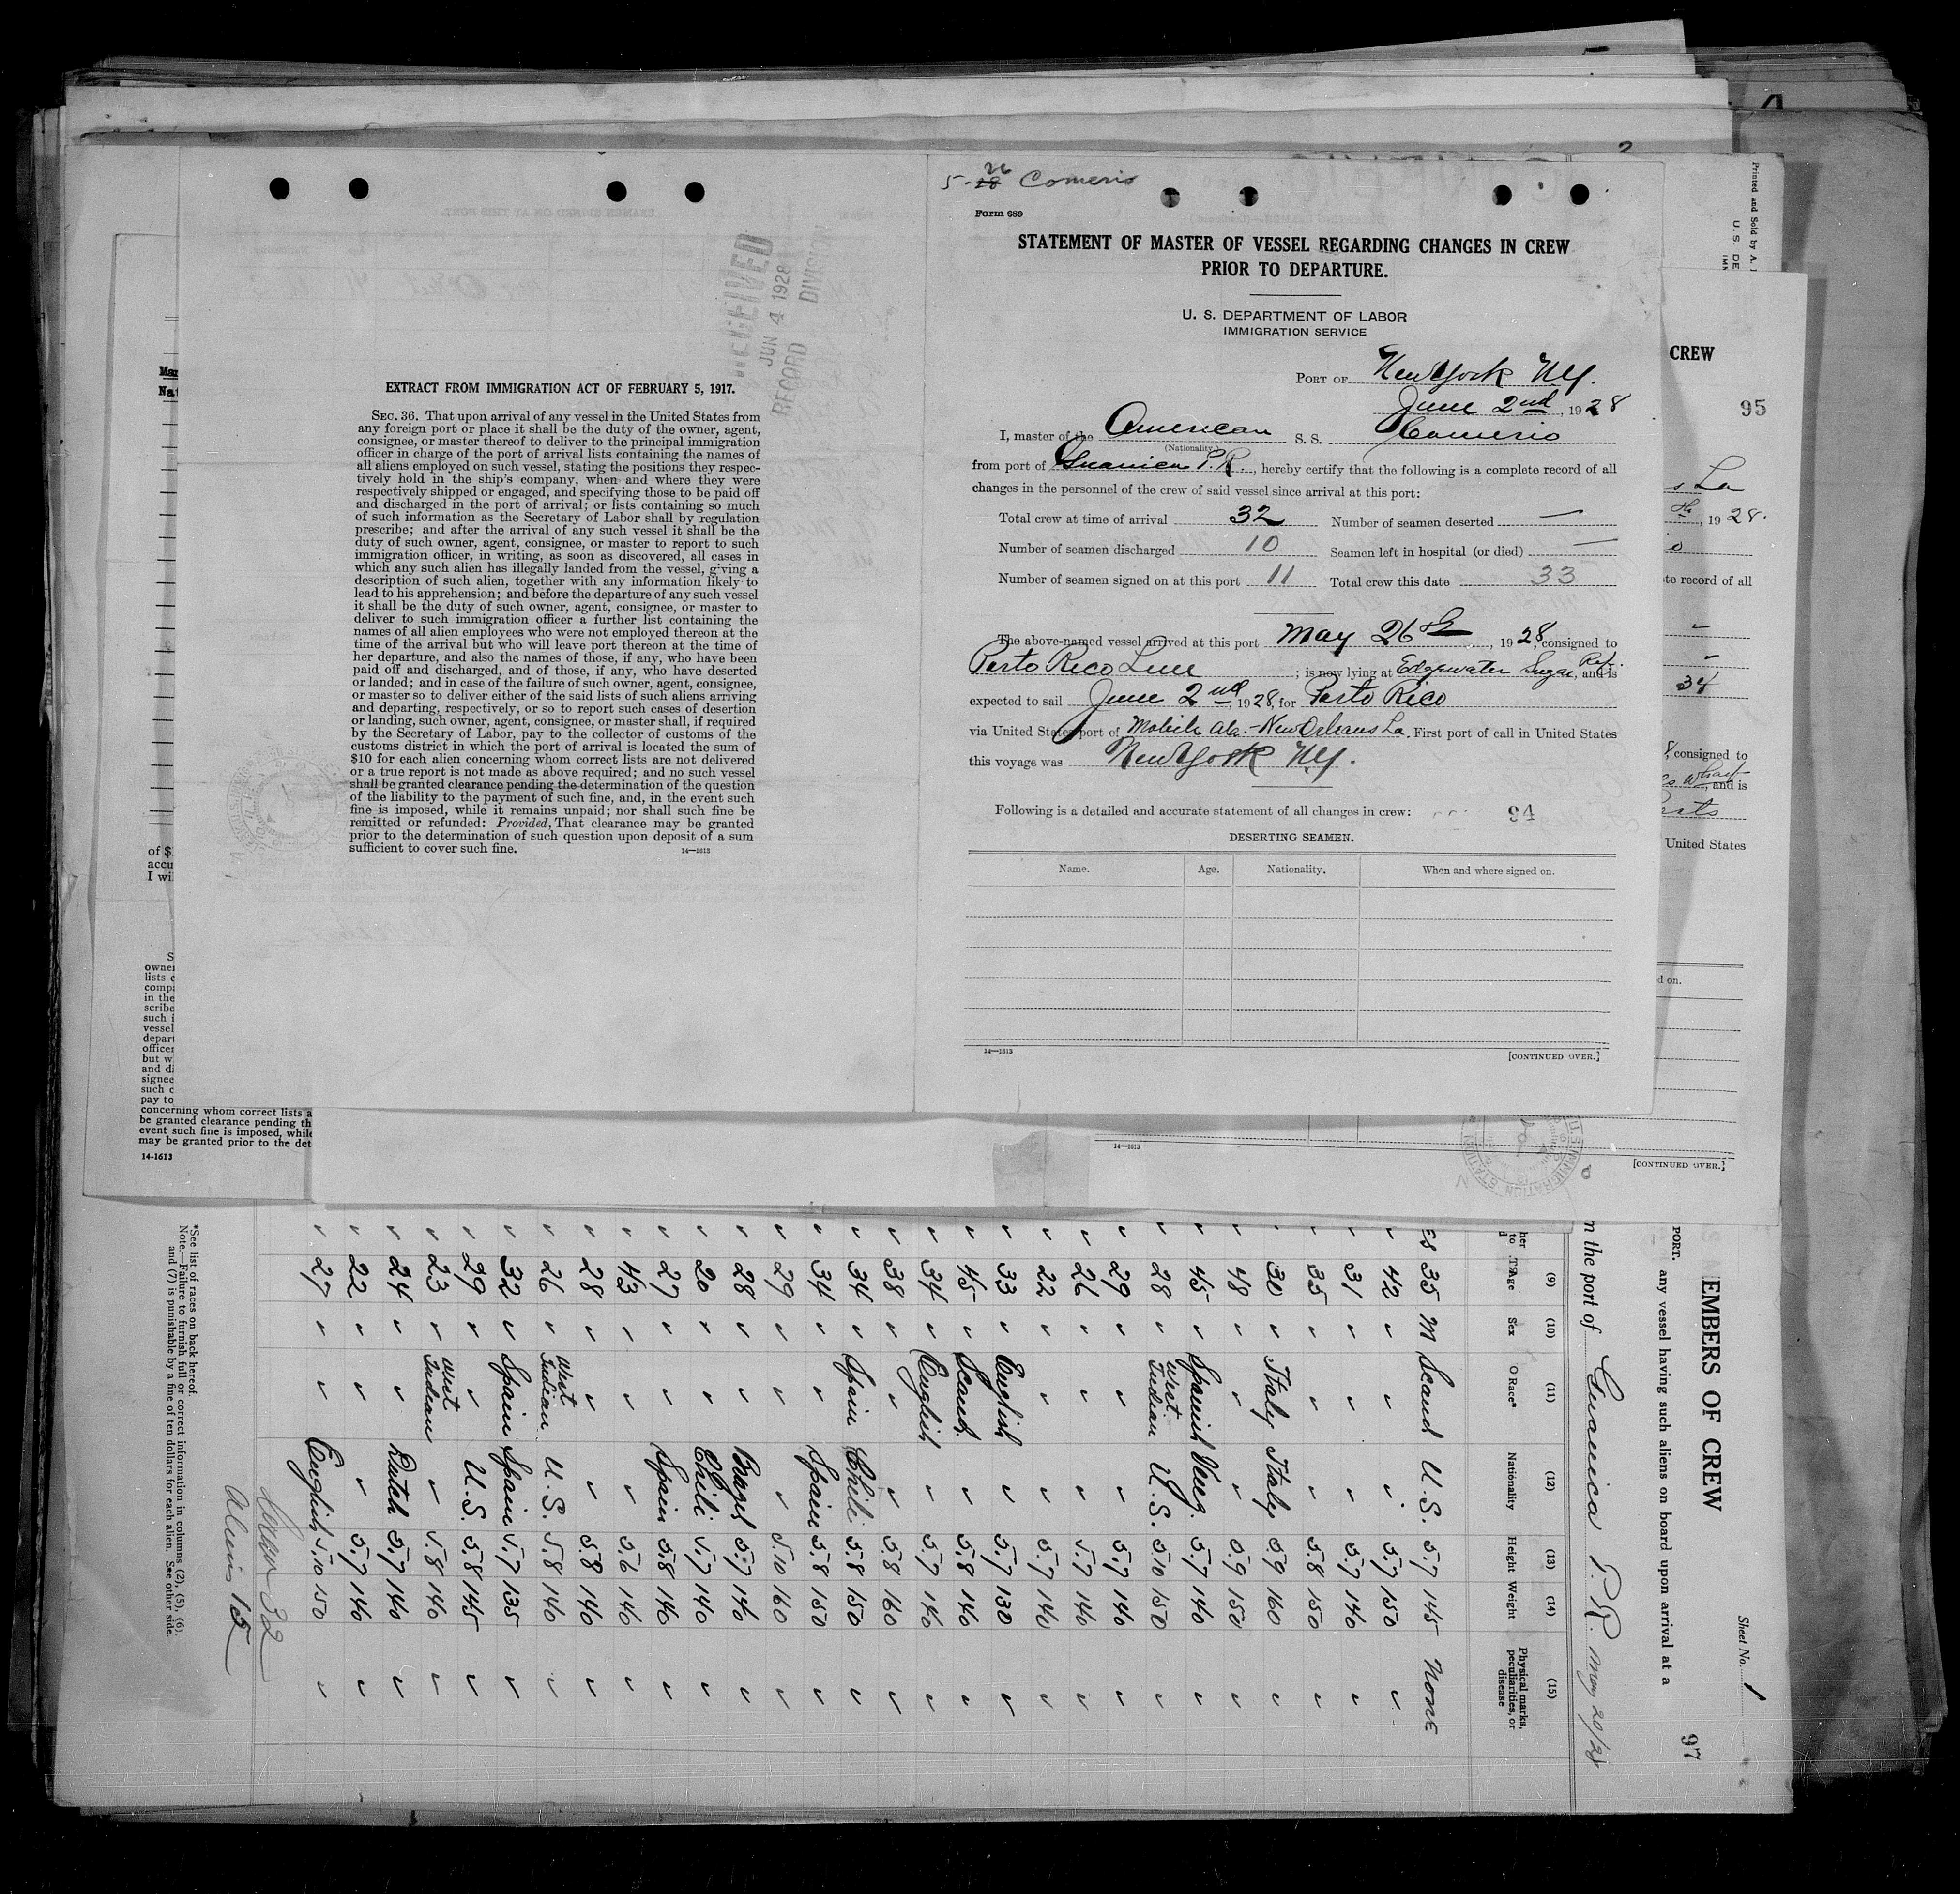 5-26 Comerio
Form 689
STATEMENT OF MASTER OF VESSEL REGARDING CHANGES IN CREW
PRIOR TO DEPARTURE.
U. S. DEPARTMENT OF LABOR
IMMIGRATION SERVICE
PORT OF New York NY.
June 2nd, 1928
I, master of the American S. S. Comerio
(Nationality)
from port of Guanica P.R., hereby certify that the following is a complete record of all
changes in the personnel of the crew of said vessel since arrival at this port:
Total crew at time of arrival 32 Number of seamen deserted —
Number of seamen discharged 10 Seamen left in hospital (or died) —
Number of seamen signed on at this port 11 Total crew this date 33
The above-named vessel arrived at this port May 26th, 1928, consigned to
Porto Rico Line; is now lying at Edgewater Sugar Ref., and is
expected to sail June 2nd, 1928, for Porto Rico
via United States port of Mobile Ala.-New Orleans La. First port of call in United States
this voyage was New York NY.
Following is a detailed and accurate statement of all changes in crew:
94
DESERTING SEAMEN.
Name. Age. Nationality. When and where signed on.
14—1613
[CONTINUED OVER.]
RECEIVED
JUN 4 1928
RECORD DIVISION
EXTRACT FROM IMMIGRATION ACT OF FEBRUARY 5, 1917.
SEC. 36. That upon arrival of any vessel in the United States from
any foreign port or place it shall be the duty of the owner, agent,
consignee, or master thereof to deliver to the principal immigration
officer in charge of the port of arrival lists containing the names of
all aliens employed on such vessel, stating the positions they respec-
tively hold in the ship's company, when and where they were
respectively shipped or engaged, and specifying those to be paid off
and discharged in the port of arrival; or lists containing so much
of such information as the Secretary of Labor shall by regulation
prescribe; and after the arrival of any such vessel it shall be the
duty of such owner, agent, consignee, or master to report to such
immigration officer, in writing, as soon as discovered, all cases in
which any such alien has illegally landed from the vessel, giving a
description of such alien, together with any information likely to
lead to his apprehension; and before the departure of any such vessel
it shall be the duty of such owner, agent, consignee, or master to
deliver to such immigration officer a further list containing the
names of all alien employees who were not employed thereon at the
time of the arrival but who will leave port thereon at the time of
her departure, and also the names of those, if any, who have been
paid off and discharged, and of those, if any, who have deserted
or landed; and in case of the failure of such owner, agent, consignee,
or master so to deliver either of the said lists of such aliens arriving
and departing, respectively, or so to report such cases of desertion
or landing, such owner, agent, consignee, or master shall, if required
by the Secretary of Labor, pay to the collector of customs of the
customs district in which the port of arrival is located the sum of
$10 for each alien concerning whom correct lists are not delivered
or a true report is not made as above required; and no such vessel
shall be granted clearance pending the determination of the question
of the liability to the payment of such fine, and, in the event such
fine is imposed, while it remains unpaid; nor shall such fine be
remitted or refunded: Provided, That clearance may be granted
prior to the determination of such question upon deposit of a sum
sufficient to cover such fine.
14—1613
CREW
95
s La
, 1928.
te record of all
34
consigned to
Wharf
, and is
United States
d on.
14—1613
[CONTINUED OVER.]
of $
accu
I wi
owner
lists
comp
in the
scribe
such
vessel
depart
officer
but w
and d
signee
such
pay to
concerning whom correct lists a
be granted clearance pending th
event such fine is imposed, while
may be granted prior to the det
14-1613
Printed and Sold by A.
U. S. DE
Sheet No. 1
97
EMBERS OF CREW
any vessel having such aliens on board upon arrival at a
PORT.
n the port of Guanica P.R. May 20/28
(9) Age (10) Sex (11) Race* (12) Nationality (13) Height (14) Weight (15) Physical marks, peculiarities, or disease
35 M Scand U.S. 5.7 145 None
42 " " " 5.7 150 "
31 " " " 5.7 140 "
35 " " " 5.8 150 "
30 " Italy Italy 5.9 160 "
48 " " " 5.9 150 "
45 " Spanish Venez. 5.7 140 "
28 " West Indian U.S. 5.10 150 "
29 " " " 5.7 140 "
26 " " " 5.7 140 "
22 " " " 5.7 140 "
33 " English " 5.7 130 "
45 " Scand. " 5.8 140 "
34 " English " 5.7 140 "
38 " " " 5.8 160 "
34 " Spain Chili 5.8 150 "
34 " " Spain 5.8 150 "
29 " " " 5.10 160 "
28 " " Brazil 5.7 140 "
20 " " Chili 5.7 140 "
27 " " Spain 5.8 140 "
43 " " " 5.6 140 "
28 " " " 5.8 140 "
26 " West Indian U.S. 5.8 140 "
32 " Spain Spain 5.7 135 "
29 " " U.S. 5.8 145 "
23 " West Indian " 5.8 140 "
24 " " Dutch 5.7 140 "
22 " " " 5.7 140 "
27 " " English 5.10 150 "
32
Aliens 15
*See list of races on back hereof.
Note.—Failure to furnish full or correct information in columns (2), (5), (6),
and (7) is punishable by a fine of ten dollars for each alien. See other side.